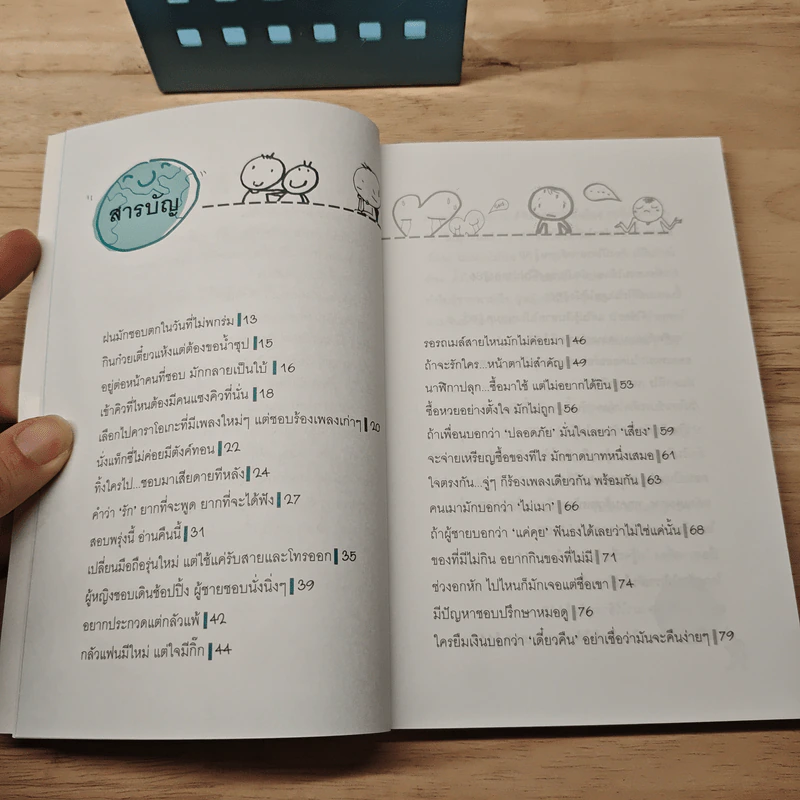 สารบัญ
ฝนมักชอบตกในวันที่ไม่พกร่ม 13
กินก๋วยเตี๋ยวแห้งแต่ต้องขอน้ำซุป 15
อยู่ต่อหน้าคนที่ชอบ มักกลายเป็นใบ้ 16
เข้าคิวที่ไหนต้องมีคนแซงคิวที่นั่น 18
เลือกไปคาราโอเกะที่มีเพลงใหม่ๆ แต่ชอบร้องเพลงเก่าๆ 20
นั่งแท็กซี่ไม่ค่อยมีตังค์ทอน 22
ทิ้งใครไป...ชอบมาเสียดายทีหลัง 24
คำว่า ‘รัก’ ยากที่จะพูด ยากที่จะได้ฟัง 27
สอบพรุ่งนี้ อ่านคืนนี้ 31
เปลี่ยนมือถือรุ่นใหม่ แต่ใช้แค่รับสายและโทรออก 35
ผู้หญิงชอบเดินช้อปปิ้ง ผู้ชายชอบนั่งนิ่งๆ 39
อยากประกวดแต่กลัวแพ้ 42
กลัวแฟนมีใหม่ แต่ใจมีกิ๊ก 44
รอรถเมล์สายไหนมักไม่ค่อยมา 46
ถ้าจะรักใคร...หน้าตาไม่สำคัญ 49
นาฬิกาปลุก...ซื้อมาใช้ แต่ไม่อยากได้ยิน 53
ซื้อหวยอย่างตั้งใจ มักไม่ถูก 56
ถ้าเพื่อนบอกว่า ‘ปลอดภัย’ มั่นใจเลยว่า ‘เสี่ยง’ 59
จะจ่ายเหรียญซื้อของทีไร มักขาดบาทหนึ่งเสมอ 61
ใจตรงกัน...จู่ๆ ก็ร้องเพลงเดียวกัน พร้อมกัน 63
คนเมามักบอกว่า ‘ไม่เมา’ 66
ถ้าผู้ชายบอกว่า ‘แค่คุย’ ฟันธงได้เลยว่าไม่ใช่แค่นั้น 68
ของที่มีไม่กิน อยากกินของที่ไม่มี 71
ช่วงอกหัก ไปไหนก็มักเจอแต่ชื่อเขา 74
มีปัญหาชอบปรึกษาหมอดู 76
ใครยืมเงินบอกว่า ‘เดี๋ยวคืน’ อย่าเชื่อว่ามันจะคืนง่ายๆ 79